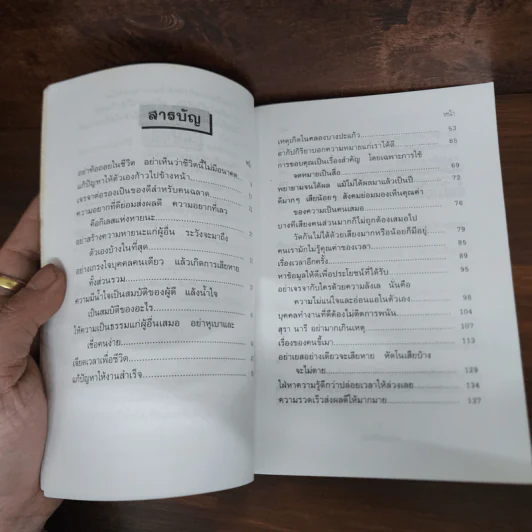 สารบัญ
อย่าท้อถอยในชีวิต อย่าเห็นว่าชีวิตนี้ไม่มีอนาคต
แก้ปัญหาให้ตัวเองก้าวไปข้างหน้า
เจรจาต่อรองเป็นของดีสำหรับคนฉลาด
ความอยากที่ดีย่อมส่งผลดี ความอยากที่เลว
คือกิเลสแห่งหายนะ
อย่าสร้างความหายนะแก่ผู้อื่น ระวังจะมาถึง
ตัวเองบ้างในที่สุด
อย่าเกรงใจบุคคลคนเดียว แล้วเกิดการเสียหาย
ทั้งส่วนรวม
ความมีน้ำใจเป็นสมบัติของผู้ดี แล้งน้ำใจ
เป็นสมบัติของอะไร
ให้ความเป็นธรรมแก่ผู้อื่นเสมอ อย่าหูเบาและ
เชื่อคนง่าย
เจียดเวลาเพื่อชีวิต
แก้ปัญหาให้งานสำเร็จ
หน้า
เหตุเกิดในคลองบางปะแก้ว 53
ตากับกิริยาบอกความหมายแก่เราได้ดี 65
การขอบคุณเป็นเรื่องสำคัญ โดยเฉพาะการใช้
จดหมายเป็นสื่อ 69
พยายามจนได้ผล แม้ไม่ได้ผลมาแล้วเป็นปี 72
ดีมากๆ เสียน้อยๆ สังคมย่อมมองเห็นคุณค่า
ของความเป็นคนเสมอ 76
บางทีเสียงคนส่วนมากก็ไม่ถูกต้องเสมอไป
วัดกันไม่ได้ด้วยเสียงมากหรือน้อยก็มีอยู่ 79
คนเรามักไม่รู้คุณค่าของเวลา 86
เรื่องเวลาอีกครั้ง 90
หาข้อมูลให้ดีเพื่อประโยชน์ที่ได้รับ 95
อย่าเจรจากับใครด้วยความลังเล นั่นคือ
ความไม่แน่ใจและอ่อนแอในตัวเอง 98
บุคคลทำงานที่ดีต้องไม่ติดการพนัน 104
สุรา นารี อย่ามากเกินเหตุ 107
เรื่องของคนขี้เมา 113
อย่าเยสอย่างเดียวจะเสียหาย หัดโนเสียบ้าง
จะไม่ตาย 129
ใฝ่หาความรู้ดีกว่าปล่อยเวลาให้ล่วงเลย 134
ความรวดเร็วส่งผลดีให้มากมาย 137